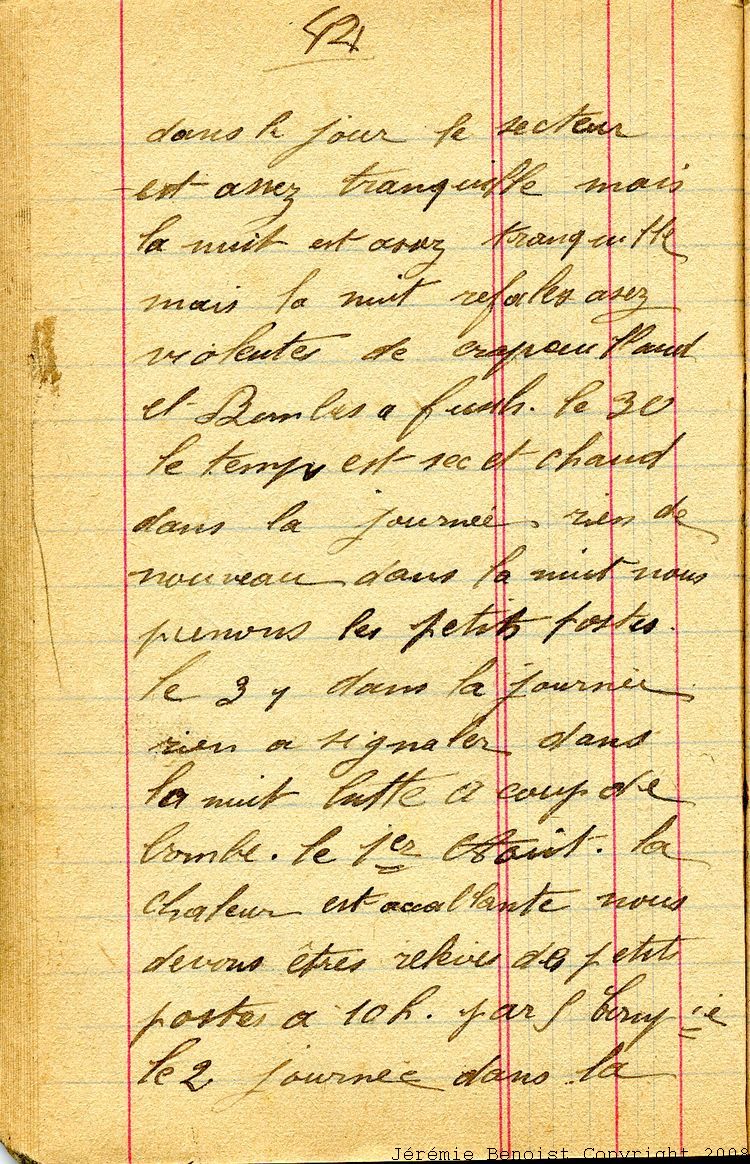 42
dans le jour le secteur
est assez tranquille mais
la nuit est assez tranquille
mais la nuit refales asez
violentes de crapouillaud
et Bombes a fusih. le 30
le temps est sec et chaud
dans la journée. rien de
nouveau dans la nuit nous
prenons les petits postes.
le 31 dans la journée
rien a signaler dans
la nuit lutte a coup de
bombe. le 1er Aout. la
chaleur est accablante nous
devons êtres relevés des petits
postes a 10h. par
le 2 journée dans la
Jérémie Benoist Copyright 2008